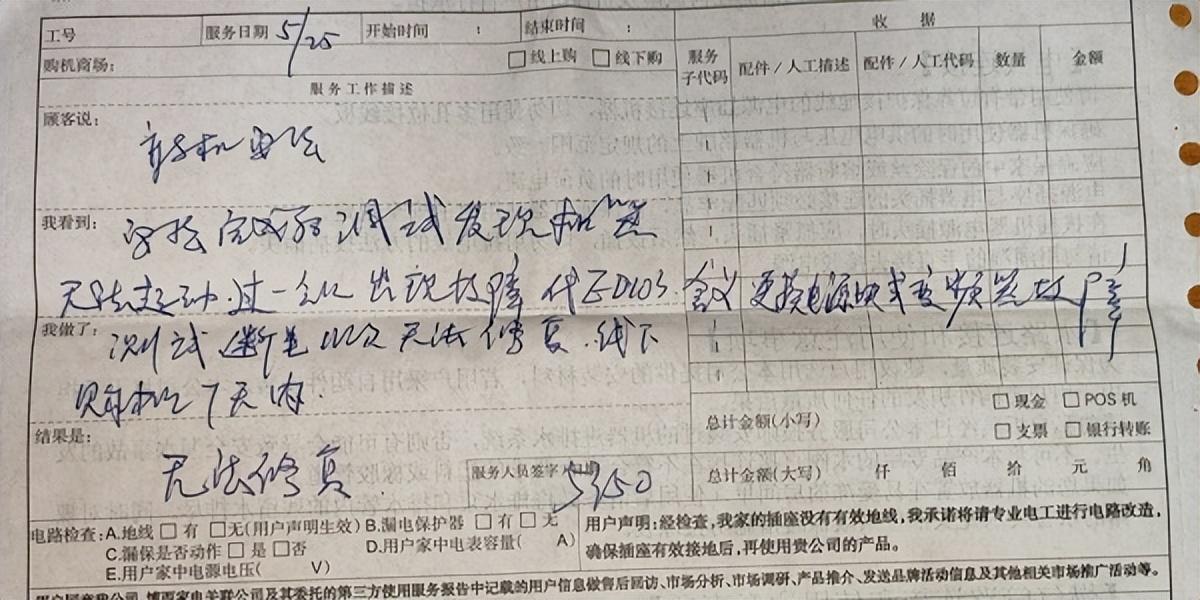 工号 服务日期 5/25 开始时间 : 结束时间 : 收 据
购机商场: □线上购 □线下购 服务子代码 配件/人工描述 配件/人工代码 数量 金额
服务工作描述
顾客说:
新机安装
我看到: 安装完成后调试发现机器
无法起动.过一会儿出现故障代码 更换电源板或变频器故障
我做了: 测试断电以及无法修复.线下
购机7天内.
总计金额(小写) □现金 □POS机
□支票 □银行转账
结果是:
无法修复
服务人员签字
总计金额(大写) 仟 佰 拾 元 角
电路检查:A.地线 □有 □无(用户声明生效) B.漏电保护器 □有 □无
C.漏保是否动作 □是 □否 D.用户家中电表容量( A)
E.用户家中电源电压( V)
用户声明:经检查,我家的插座没有有效地线,我承诺将请专业电工进行电路改造,
确保插座有效接地后,再使用贵公司的产品。
用户同意我公司、博西家电关联公司及其委托的第三方使用服务报告中记载的用户信息做售后回访、市场分析、市场调研、产品推介、发送品牌活动信息及其他相关市场推广活动等。